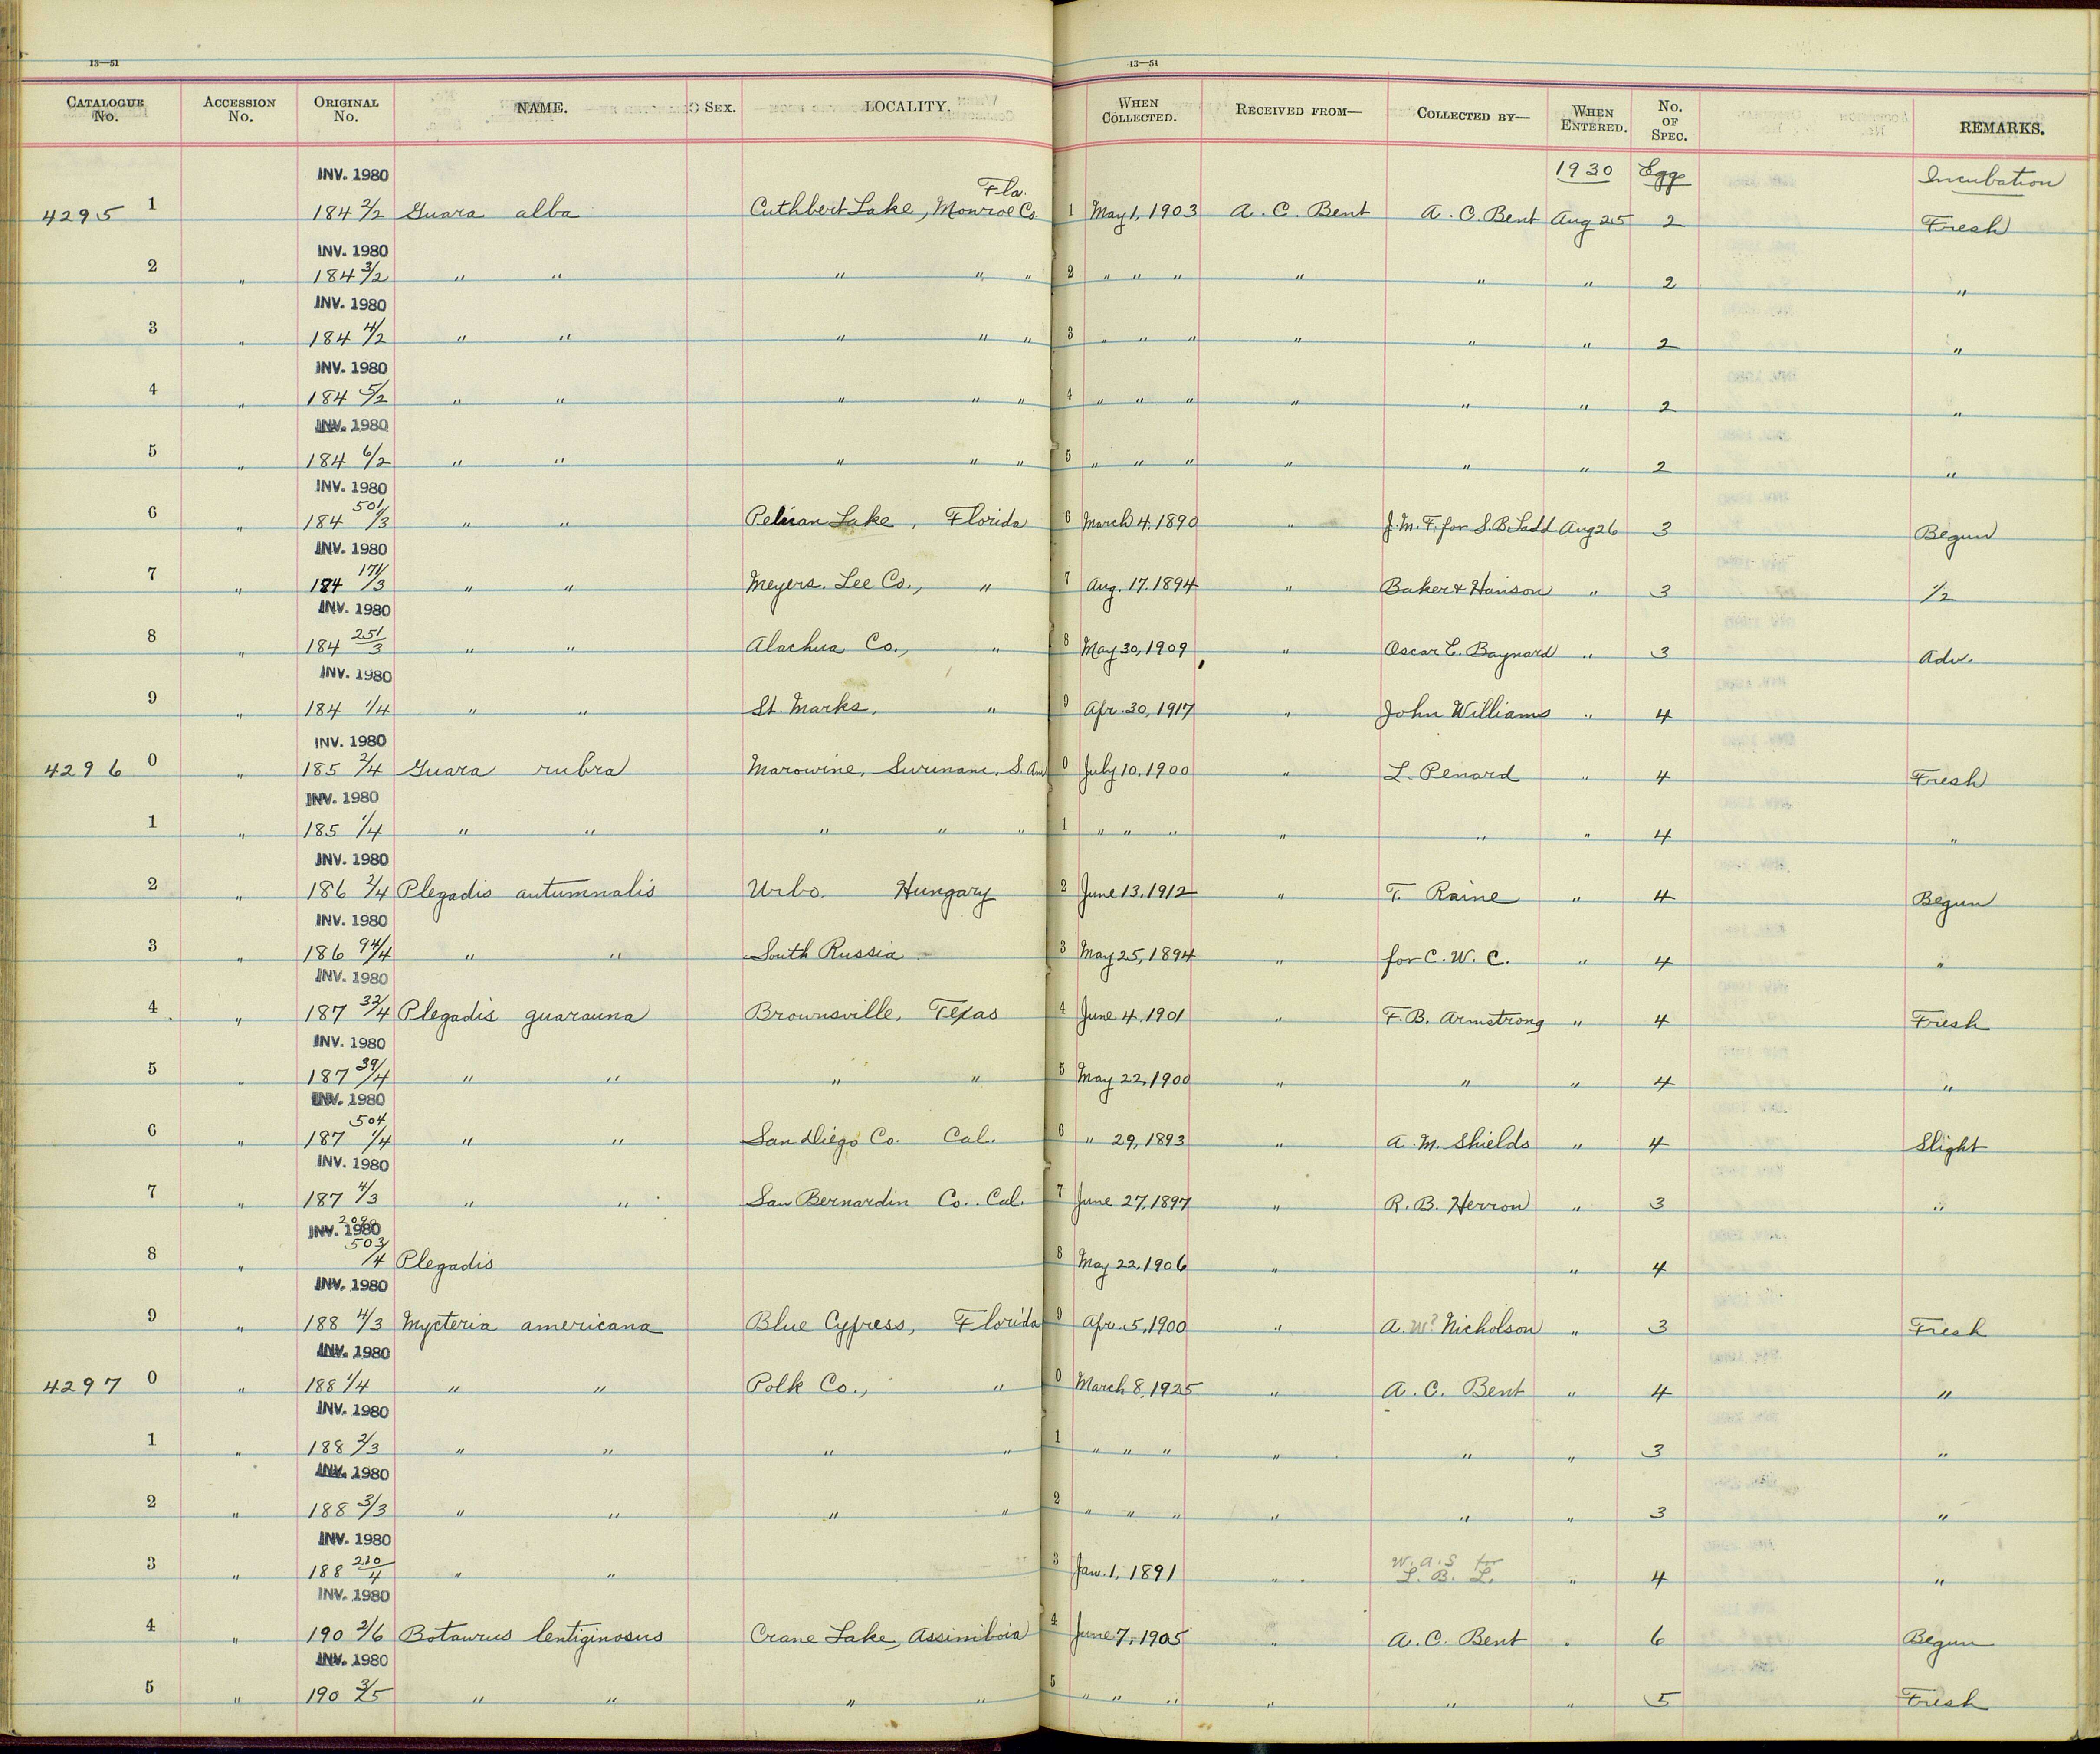 13—51 13—51
CATALOGUE No. ACCESSION No. ORIGINAL No. NAME. SEX. LOCALITY. WHEN COLLECTED. RECEIVED FROM— COLLECTED BY— WHEN ENTERED. No. OF SPEC. REMARKS.
INV. 1980 1930 Eggs Incubation
4295 1 184 2/2 Guara alba Cuthbert Lake, Monroe Co. Fla. 1 May 1, 1903 A. C. Bent A. C. Bent Aug 25 2 Fresh
INV. 1980
2 " 184 3/2 " " " " " 2 " " " " " " 2 "
INV. 1980
3 " 184 4/2 " " " " " 3 " " " " " " 2 "
INV. 1980
4 " 184 5/2 " " " " " 4 " " " " " " 2 "
INV. 1980
5 " 184 6/2 " " " " " 5 " " " " " " 2 "
INV. 1980
6 " 184 501 1/3 " " Pelican Lake, Florida 6 March 4, 1890 " J. M. F. for S. B. Ladd Aug 26 3 Begun
INV. 1980
7 " 184 171/3 " " Meyers. Lee Co., " 7 Aug. 17. 1894 " Baker & Hanson " 3 1/2
INV. 1980
8 " 184 251/3 " " Alachua Co., " 8 May 30, 1909 " Oscar E. Baynard " 3 Adv.
INV. 1980
9 " 184 1/4 " " St. Marks, " 9 Apr. 30, 1917 " John Williams " 4
INV. 1980
4296 0 " 185 2/4 Guara rubra Marowine, Surinam, S. Am 0 July 10, 1900 " L. Penard " 4 Fresh
INV. 1980
1 " 185 1/4 " " " " " 1 " " " " " " 4 "
INV. 1980
2 " 186 2/4 Plegadis autumnalis Urbo. Hungary 2 June 13, 1912 " T. Raine " 4 Begun
INV. 1980
3 " 186 94/4 " " South Russia 3 May 25, 1894 " for C. W. C. " 4 "
INV. 1980
4 " 187 32/4 Plegadis guarauna Brownsville, Texas 4 June 4, 1901 " F. B. Armstrong " 4 Fresh
INV. 1980
5 " 187 39/4 " " " " 5 May 22, 1900 " " " 4 "
INV. 1980
6 " 187 504 1/4 " " San Diego Co. Cal. 6 " 29, 1893 " A. M. Shields " 4 Slight
INV. 1980
7 " 187 4/3 " " San Bernardin Co. Cal. 7 June 27, 1897 " R. B. Herron " 3 "
INV. 1980
8 " 503/4 Plegadis 8 May 22, 1906 " " 4
INV. 1980
9 " 188 4/3 Mycteria americana Blue Cypress, Florida 9 Apr. 5, 1900 " A. W? Nicholson " 3 Fresh
INV. 1980
4297 0 " 188 1/4 " " Polk Co., " 0 March 8, 1925 " A. C. Bent " 4 "
INV. 1980
1 " 188 2/3 " " " " 1 " " " " " " 3 "
INV. 1980
2 " 188 3/3 " " " " 2 " " " " " " 3 "
INV. 1980
3 " 188 210/4 " " 3 Jan. 1, 1891 " W. A. S for L. B. L. " 4 "
INV. 1980
4 " 190 2/6 Botaurus lentiginosus Crane Lake, Assiniboia 4 June 7, 1905 " A. C. Bent " 6 Begun
INV. 1980
5 " 190 3/5 " " " " 5 " " " " " " 5 Fresh